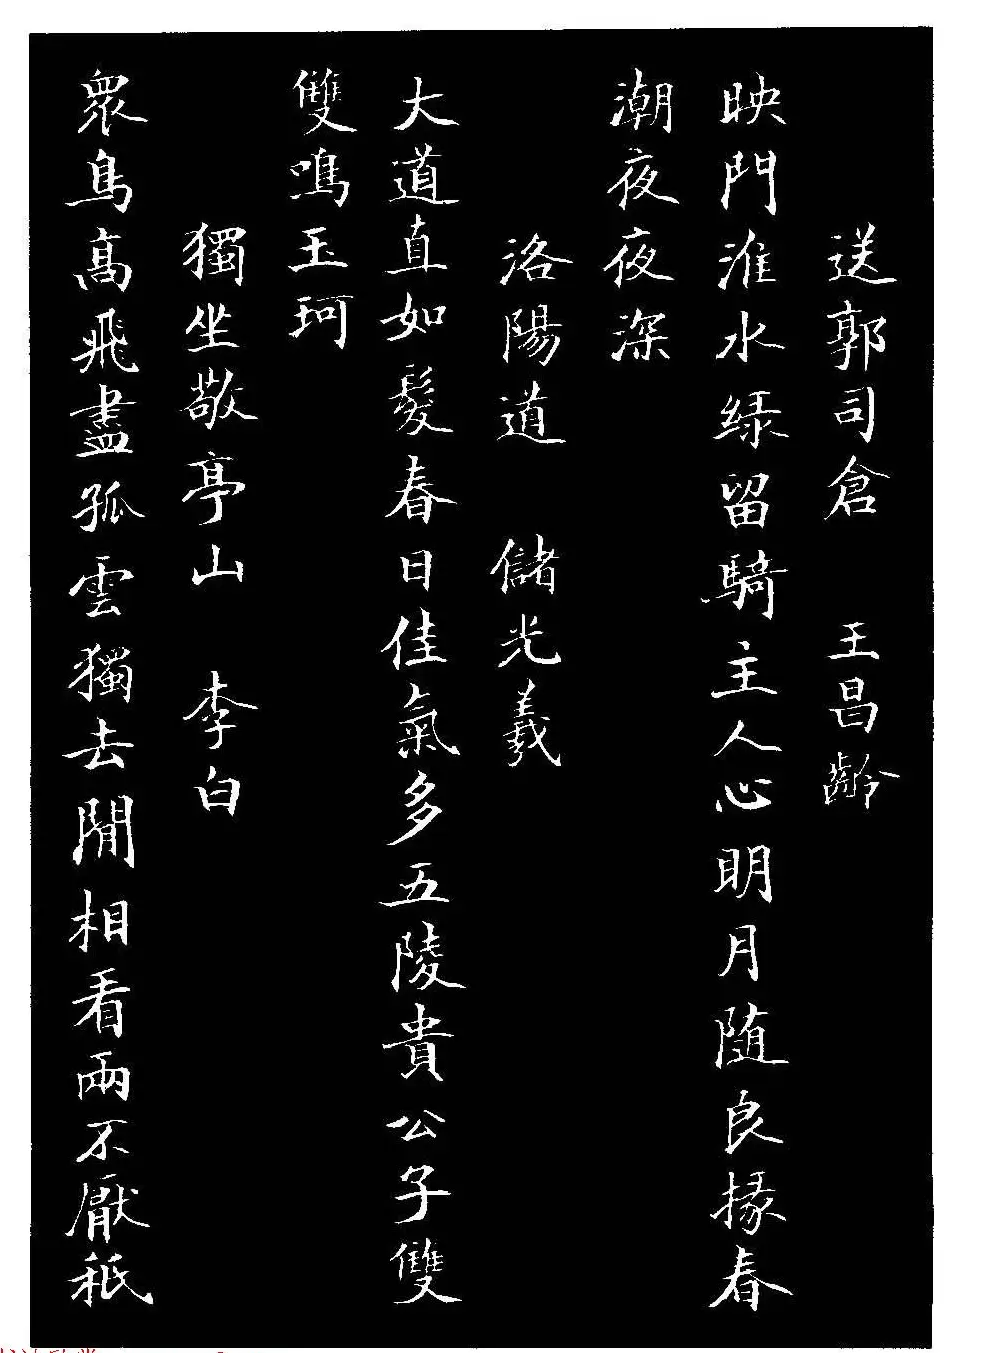 送郭司倉 王昌齡
映門淮水緑留騎主人心明月随良掾春
潮夜夜深
洛陽道 儲光羲
大道直如髮春日佳氣多五陵貴公子雙
雙鳴玉珂
獨坐敬亭山 李白
衆鳥髙飛盡孤雲獨去閒相看兩不厭秖